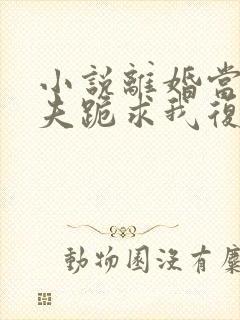 小說離婚當
夫跪求我復
動物園沒有麋